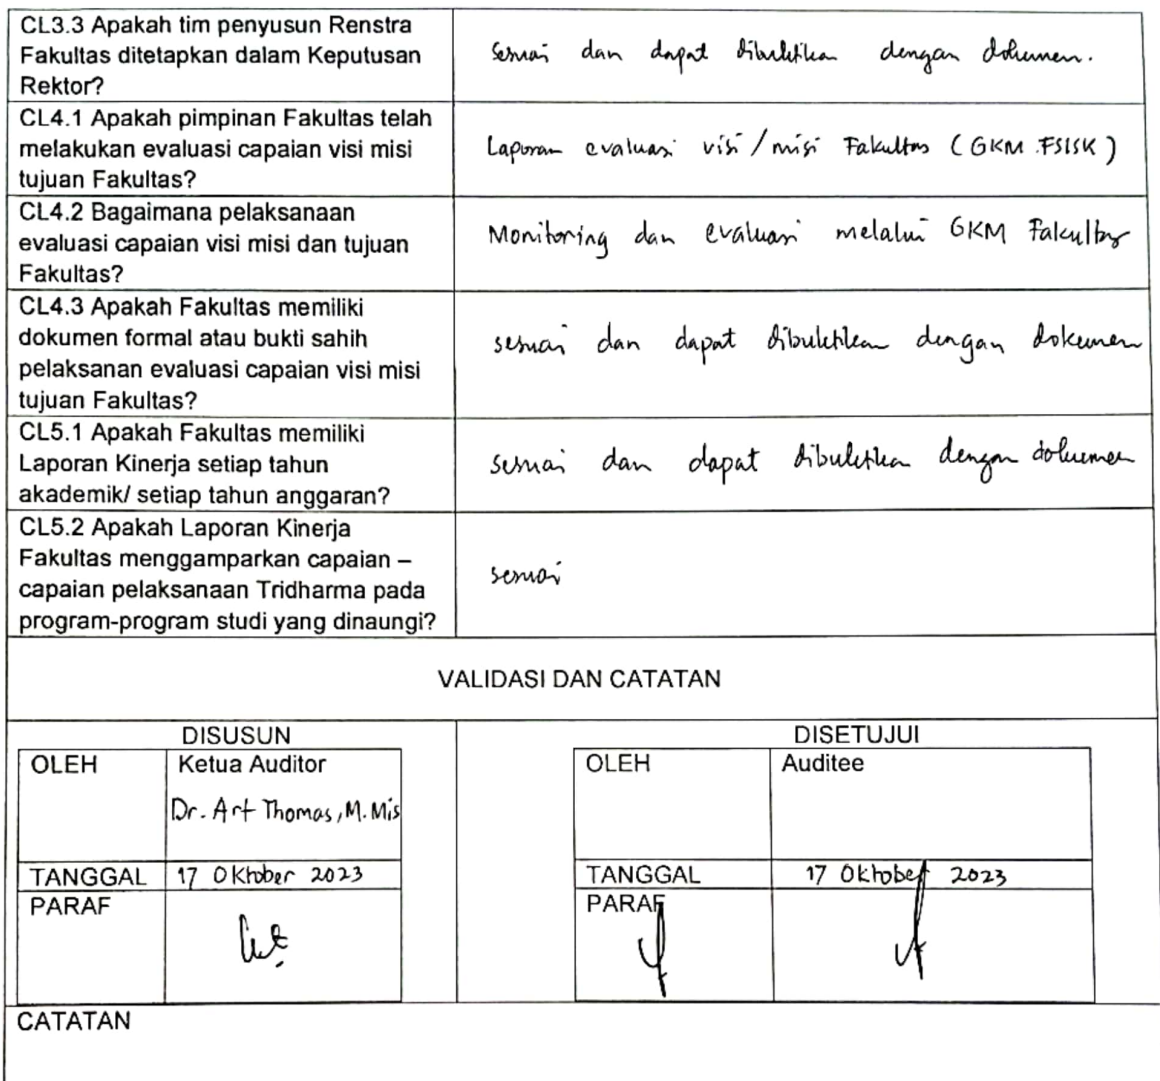 CL3.3 Apakah tim penyusun Renstra
Fakultas ditetapkan dalam Keputusan
Rektor?
sesuai dan dapat dibuktikan dengan dokumen.
CL4.1 Apakah pimpinan Fakultas telah
melakukan evaluasi capaian visi misi
tujuan Fakultas?
Laporan evaluasi visi/misi Fakultas (GKM FSISK)
CL4.2 Bagaimana pelaksanaan
evaluasi capaian visi misi dan tujuan
Fakultas?
Monitoring dan evaluasi melalui GKM Fakultas
CL4.3 Apakah Fakultas memiliki
dokumen formal atau bukti sahih
pelaksanan evaluasi capaian visi misi
tujuan Fakultas?
sesuai dan dapat dibuktikan dengan dokumen
CL5.1 Apakah Fakultas memiliki
Laporan Kinerja setiap tahun
akademik/ setiap tahun anggaran?
sesuai dan dapat dibuktikan dengan dokumen
CL5.2 Apakah Laporan Kinerja
Fakultas menggamparkan capaian –
capaian pelaksanaan Tridharma pada
program-program studi yang dinaungi?
sesuai
VALIDASI DAN CATATAN
DISUSUN
OLEH Ketua Auditor
Dr. Art Thomas, M.Mis
TANGGAL 17 Oktober 2023
PARAF
DISETUJUI
OLEH Auditee
TANGGAL 17 Oktober 2023
PARAF
CATATAN